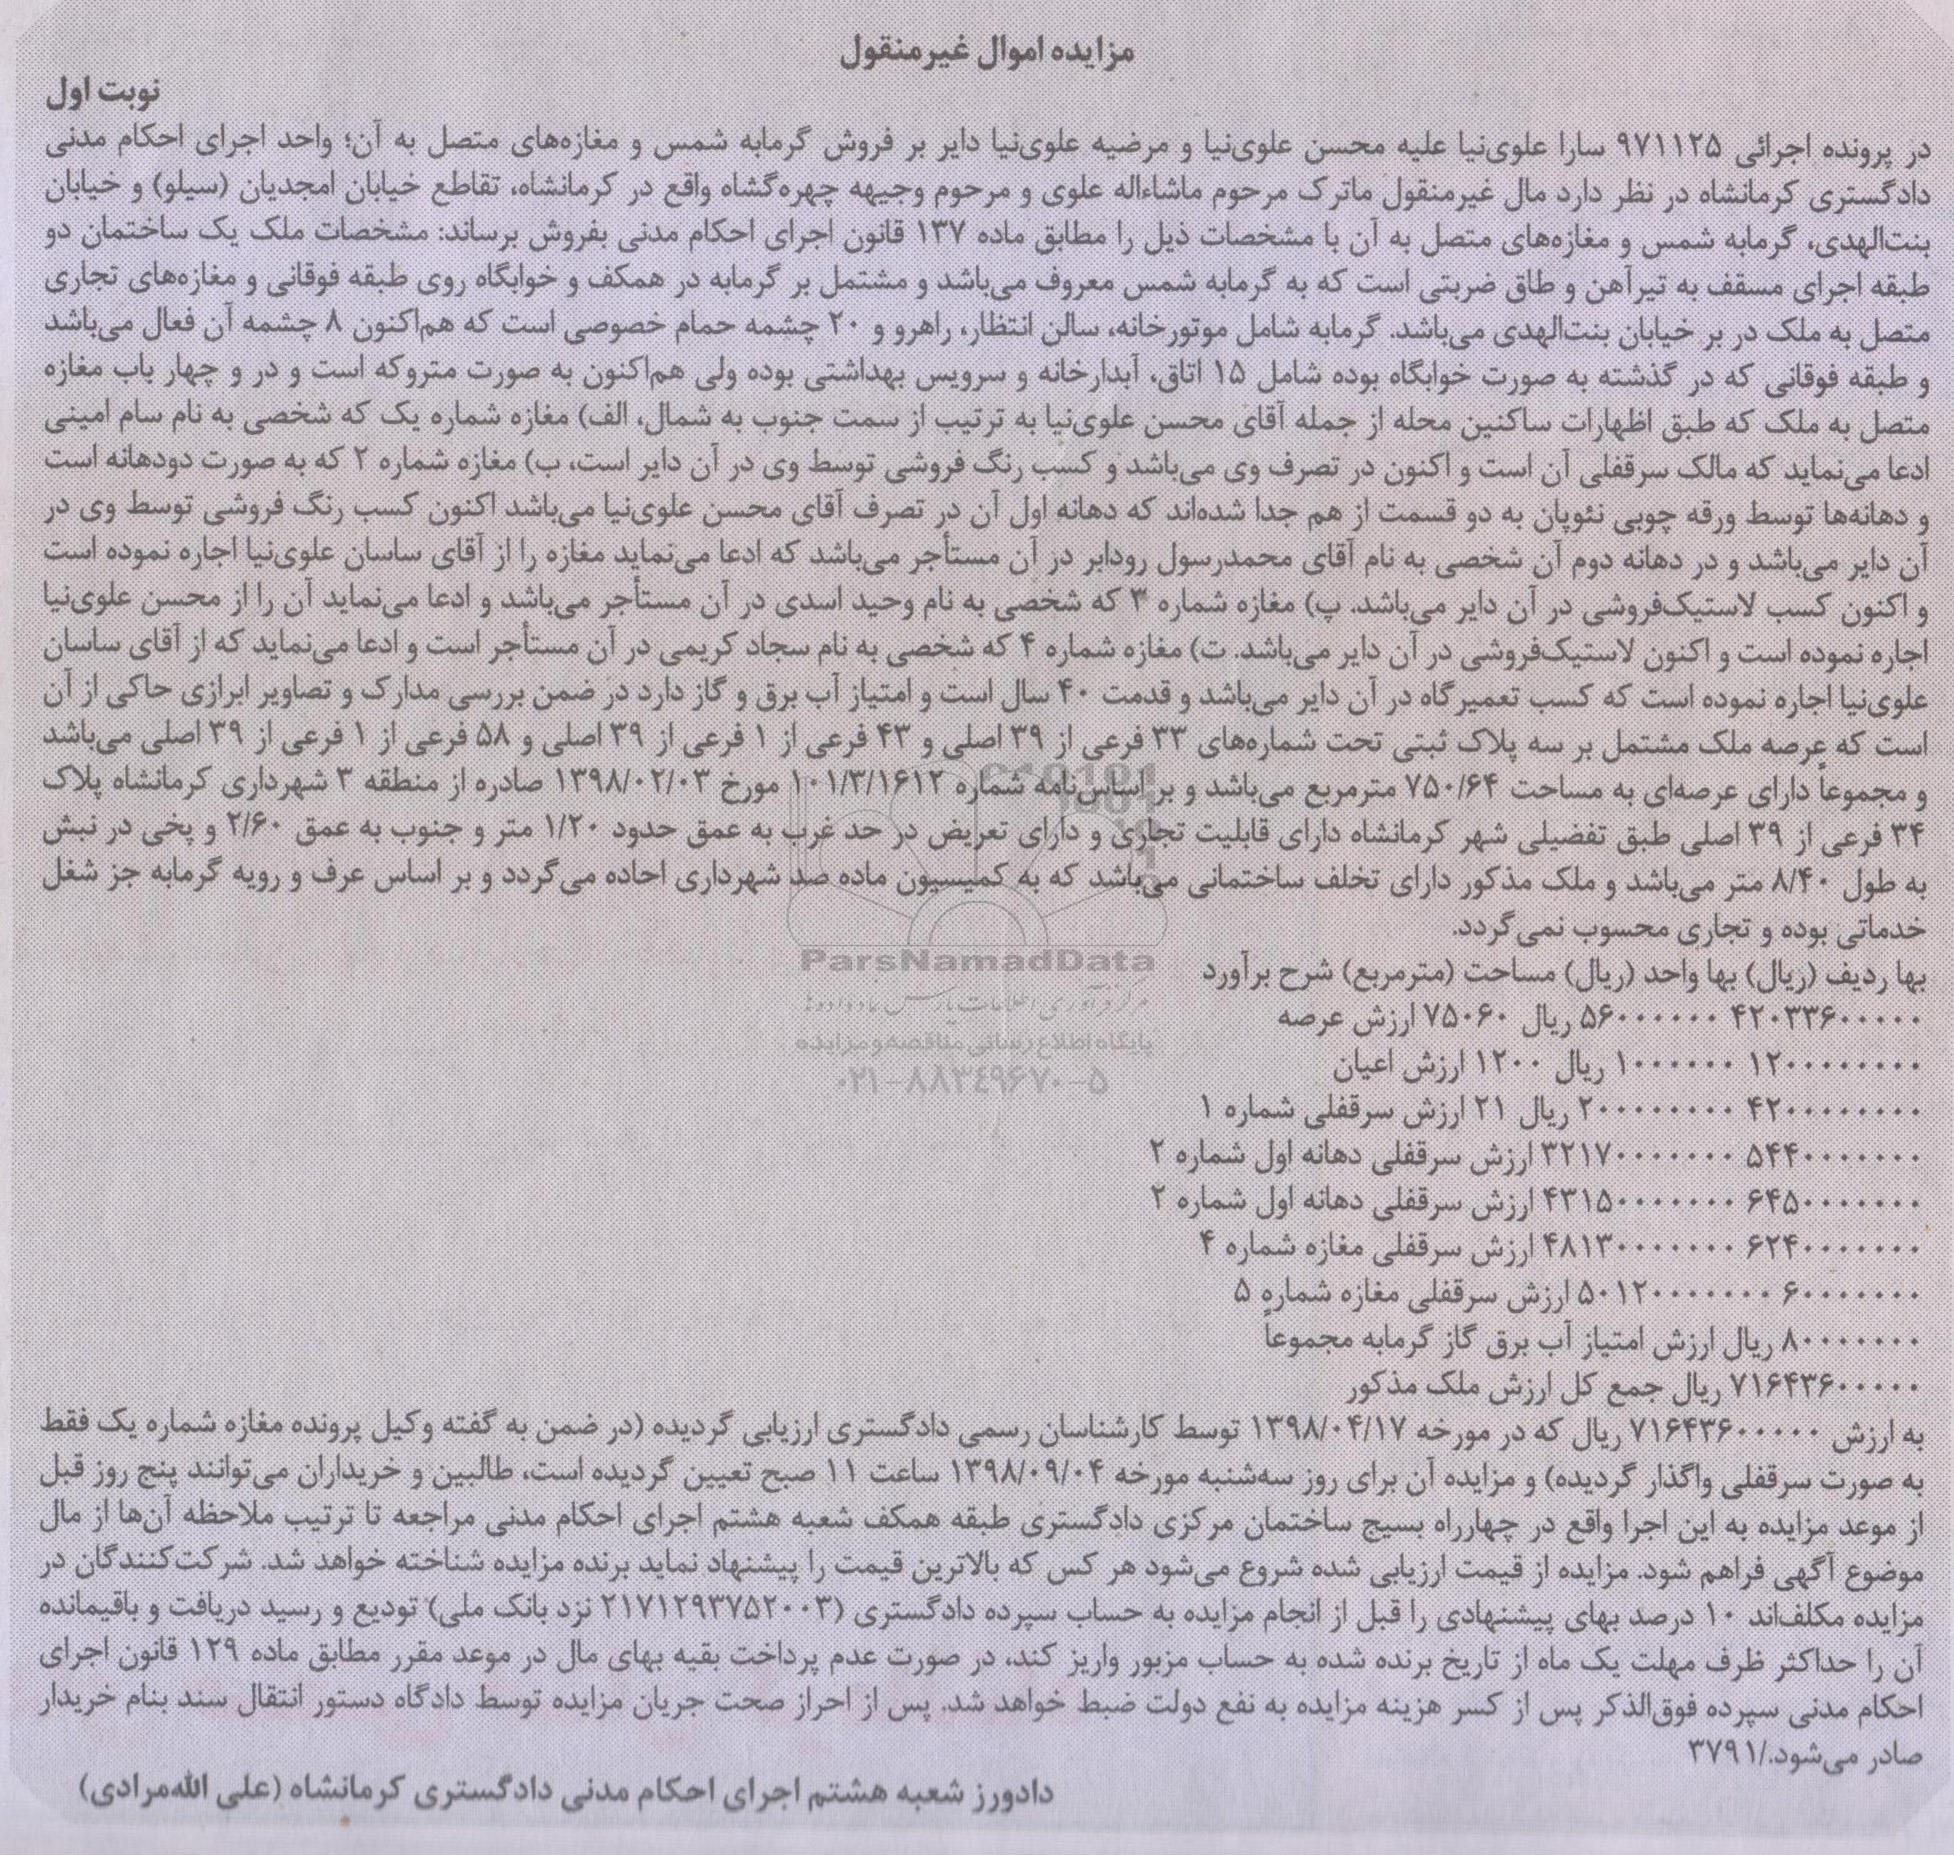 مزایده اموال غیرمنقول
نوبت اول
در پرونده اجرائی ۹۷۱۱۲۵ سارا علوی‌نیا علیه محسن علوی‌نیا و مرضیه علوی‌نیا دایر بر فروش گرمابه شمس و مغازه‌های متصل به آن؛ واحد اجرای احکام مدنی
دادگستری کرمانشاه در نظر دارد مال غیرمنقول ماترک مرحوم ماشاءاله علوی و مرحوم وجیهه چهره‌گشاه واقع در کرمانشاه، تقاطع خیابان امجدیان (سیلو) و خیابان
بنت‌الهدی، گرمابه شمس و مغازه‌های متصل به آن با مشخصات ذیل را مطابق ماده ۱۳۷ قانون اجرای احکام مدنی بفروش برساند: مشخصات ملک یک ساختمان دو
طبقه اجرای مسقف به تیرآهن و طاق ضربتی است که به گرمابه شمس معروف می‌باشد و مشتمل بر گرمابه در همکف و خوابگاه روی طبقه فوقانی و مغازه‌های تجاری
متصل به ملک در بر خیابان بنت‌الهدی می‌باشد. گرمابه شامل موتورخانه، سالن انتظار، راهرو و ۲۰ چشمه حمام خصوصی است که هم‌اکنون ۸ چشمه آن فعال می‌باشد
و طبقه فوقانی که در گذشته به صورت خوابگاه بوده شامل ۱۵ اتاق، آبدارخانه و سرویس بهداشتی بوده ولی هم‌اکنون به صورت متروکه است و در و چهار باب مغازه
متصل به ملک که طبق اظهارات ساکنین محله از جمله آقای محسن علوی‌نیا به ترتیب از سمت جنوب به شمال، الف) مغازه شماره یک که شخصی به نام سام امینی
ادعا می‌نماید که مالک سرقفلی آن است و اکنون در تصرف وی می‌باشد و کسب رنگ فروشی توسط وی در آن دایر است، ب) مغازه شماره ۲ که به صورت دودهانه است
و دهانه‌ها توسط ورقه چوبی نئوپان به دو قسمت از هم جدا شده‌اند که دهانه اول آن در تصرف آقای محسن علوی‌نیا می‌باشد اکنون کسب رنگ فروشی توسط وی در
آن دایر می‌باشد و در دهانه دوم آن شخصی به نام آقای محمدرسول رودابر در آن مستأجر می‌باشد که ادعا می‌نماید مغازه را از آقای ساسان علوی‌نیا اجاره نموده است
و اکنون کسب لاستیک‌فروشی در آن دایر می‌باشد. پ) مغازه شماره ۳ که شخصی به نام وحید اسدی در آن مستأجر می‌باشد و ادعا می‌نماید آن را از محسن علوی‌نیا
اجاره نموده است و اکنون لاستیک‌فروشی در آن دایر می‌باشد. ت) مغازه شماره ۴ که شخصی به نام سجاد کریمی در آن مستأجر است و ادعا می‌نماید که از آقای ساسان
علوی‌نیا اجاره نموده است که کسب تعمیرگاه در آن دایر می‌باشد و قدمت ۴۰ سال است و امتیاز آب برق و گاز دارد در ضمن بررسی مدارک و تصاویر ابرازی حاکی از آن
است که عرصه ملک مشتمل بر سه پلاک ثبتی تحت شماره‌های ۳۳ فرعی از ۳۹ اصلی و ۴۳ فرعی از ۱ فرعی از ۳۹ اصلی و ۵۸ فرعی از ۱ فرعی از ۳۹ اصلی می‌باشد
و مجموعاً دارای عرصه‌ای به مساحت ۷۵۰/۶۴ مترمربع می‌باشد و بر اساس‌نامه شماره ۱۰۱/۳/۱۶۱۲ مورخ ۱۳۹۸/۰۲/۰۳ صادره از منطقه ۳ شهرداری کرمانشاه پلاک
۳۴ فرعی از ۳۹ اصلی طبق تفضیلی شهر کرمانشاه دارای قابلیت تجاری و دارای تعریض در حد غرب به عمق حدود ۱/۲۰ متر و جنوب به عمق ۲/۶۰ و پخی در نبش
به طول ۸/۴۰ متر می‌باشد و ملک مذکور دارای تخلف ساختمانی می‌باشد که به کمیسیون ماده صد شهرداری احاده می‌گردد و بر اساس عرف و رویه گرمابه جز شغل
خدماتی بوده و تجاری محسوب نمی‌گردد.
بها ردیف (ریال) بها واحد (ریال) مساحت (مترمربع) شرح برآورد
۴۲۰۳۳۶۰۰۰۰۰ ۵۶۰۰۰۰۰۰ ریال ۷۵۰۶۰ ارزش عرصه
۱۲۰۰۰۰۰۰۰۰۰ ۱۰۰۰۰۰۰ ریال ۱۲۰۰ ارزش اعیان
۴۲۰۰۰۰۰۰۰۰۰ ۲۰۰۰۰۰۰۰۰ ریال ۲۱ ارزش سرقفلی شماره ۱
۵۴۴۰۰۰۰۰۰۰۰ ۳۲۱۷۰۰۰۰۰۰۰ ارزش سرقفلی دهانه اول شماره ۲
۶۴۵۰۰۰۰۰۰۰۰ ۴۳۱۵۰۰۰۰۰۰۰ ارزش سرقفلی دهانه اول شماره ۲
۶۲۴۰۰۰۰۰۰۰۰ ۴۸۱۳۰۰۰۰۰۰۰ ارزش سرقفلی مغازه شماره ۴
۶۰۰۰۰۰۰۰۰ ۵۰۱۲۰۰۰۰۰۰۰ ارزش سرقفلی مغازه شماره ۵
۸۰۰۰۰۰۰۰۰ ریال ارزش امتیاز آب برق گاز گرمابه مجموعاً
۷۱۶۴۳۶۰۰۰۰۰ ریال جمع کل ارزش ملک مذکور
به ارزش ۷۱۶۴۳۶۰۰۰۰۰ ریال که در مورخه ۱۳۹۸/۰۴/۱۷ توسط کارشناسان رسمی دادگستری ارزیابی گردیده (در ضمن به گفته وکیل پرونده مغازه شماره یک فقط
به صورت سرقفلی واگذار گردیده) و مزایده آن برای روز سه‌شنبه مورخه ۱۳۹۸/۰۹/۰۴ ساعت ۱۱ صبح تعیین گردیده است، طالبین و خریداران می‌توانند پنج روز قبل
از موعد مزایده به این اجرا واقع در چهارراه بسیج ساختمان مرکزی دادگستری طبقه همکف شعبه هشتم اجرای احکام مدنی مراجعه تا ترتیب ملاحظه آن‌ها از مال
موضوع آگهی فراهم شود. مزایده از قیمت ارزیابی شده شروع می‌شود هر کس که بالاترین قیمت را پیشنهاد نماید برنده مزایده شناخته خواهد شد. شرکت‌کنندگان در
مزایده مکلف‌اند ۱۰ درصد بهای پیشنهادی را قبل از انجام مزایده به حساب سپرده دادگستری (۲۱۷۱۲۹۳۷۵۲۰۰۳ نزد بانک ملی) تودیع و رسید دریافت و باقیمانده
آن را حداکثر ظرف مهلت یک ماه از تاریخ برنده شده به حساب مزبور واریز کند، در صورت عدم پرداخت بقیه بهای مال در موعد مقرر مطابق ماده ۱۲۹ قانون اجرای
احکام مدنی سپرده فوق‌الذکر پس از کسر هزینه مزایده به نفع دولت ضبط خواهد شد. پس از احراز صحت جریان مزایده توسط دادگاه دستور انتقال سند بنام خریدار
صادر می‌شود./۳۷۹۱
دادورز شعبه هشتم اجرای احکام مدنی دادگستری کرمانشاه (علی الله‌مرادی)
ParsNamadData
مرکز فرآوری اطلاعات پارس نماد داده‌ها
پایگاه اطلاع رسانی مناقصه و مزایده
۰۲۱-۸۸۳۴۹۶۷۰-۵